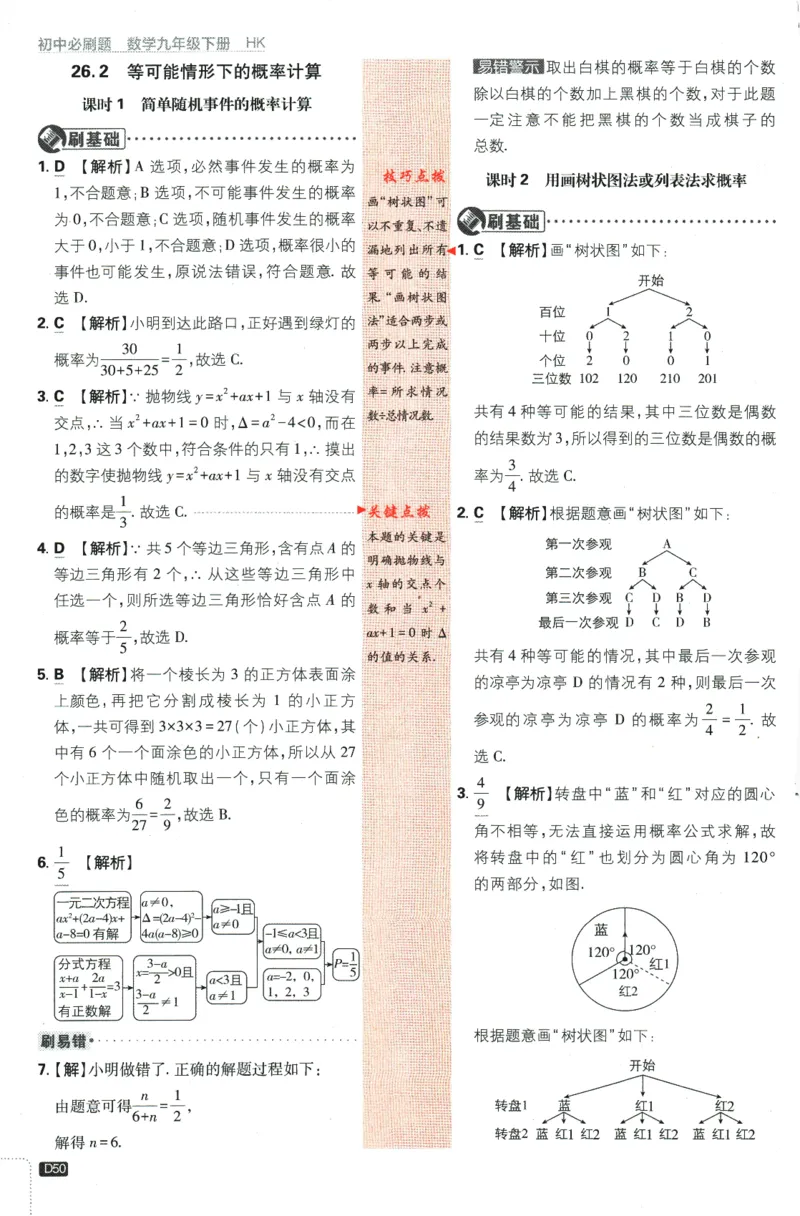 初中必刷题 数学九年级下册 HK
26.2 等可能情形下的概率计算
课时1 简单随机事件的概率计算
刷基础
1. D 【解析】A 选项,必然事件发生的概率为
1,不合题意;B 选项,不可能事件发生的概率
为0,不合题意;C 选项,随机事件发生的概率
大于0,小于1,不合题意;D 选项,概率很小的
事件也可能发生,原说法错误,符合题意. 故
选 D.
2. C 【解析】小明到达此路口,正好遇到绿灯的
概率为30/(30+5+25)=1/2,故选 C.
3. C 【解析】∵ 抛物线 y=x²+ax+1 与 x 轴没有
交点,∴ 当 x²+ax+1=0 时,Δ=a²-4<0,而在
1,2,3 这 3 个数中,符合条件的只有 1,∴ 摸出
的数字使抛物线 y=x²+ax+1 与 x 轴没有交点
的概率是1/3. 故选 C.
4. D 【解析】∵ 共 5 个等边三角形,含有点 A 的
等边三角形有 2 个,∴ 从这些等边三角形中
任选一个,则所选等边三角形恰好含点 A 的
概率等于2/5,故选 D.
5. B 【解析】将一个棱长为 3 的正方体表面涂
上颜色,再把它分割成棱长为 1 的小正方
体,一共可得到 3×3×3=27(个)小正方体,其
中有 6 个一个面涂色的小正方体,所以从 27
个小正方体中随机取出一个,只有一个面涂
色的概率为6/27=2/9,故选 B.
6. 1/5 【解析】
一元二次方程
ax²+(2a-4)x+
a-8=0 有解
a≠0,
Δ=(2a-4)²-
4a(a-8)≥0
a≥-1且
a≠0
分式方程
(x+a)/(x-1)+2a/(1-x)=3
有正数解
x=(3-a)/2>0且
(3-a)/2≠1
a<3且
a≠1
-1≤a<3且
a≠0, a≠1
a=-2, 0,
1, 2, 3
P=1/5
刷易错
7.【解】小明做错了. 正确的解题过程如下:
由题意可得n/(6+n)=1/2,
解得 n=6.
D50
技巧点拨
画“树状图”可
以不重复、不遗
漏地列出所有
等可能的结
果.“画树状图
法”适合两步或
两步以上完成
的事件.注意概
率=所求情况
数÷总情况数.
关键点拨
本题的关键是
明确抛物线与
x 轴的交点个
数和当 x²+
ax+1=0 时 Δ
的值的关系.
易错警示 取出白棋的概率等于白棋的个数
除以白棋的个数加上黑棋的个数,对于此题
一定注意不能把黑棋的个数当成棋子的
总数.
课时2 用画树状图法或列表法求概率
刷基础
1. C 【解析】画“树状图”如下:
开始
百位 1 2
十位 0 2 1 0
个位 2 0 0 1
三位数 102 120 210 201
共有 4 种等可能的结果,其中三位数是偶数
的结果数为 3,所以得到的三位数是偶数的概
率为3/4. 故选 C.
2. C 【解析】根据题意画“树状图”如下:
第一次参观 A
第二次参观 B C
第三次参观 C D B D
最后一次参观 D C D B
共有 4 种等可能的情况,其中最后一次参观
的凉亭为凉亭 D 的情况有 2 种,则最后一次
参观的凉亭为凉亭 D 的概率为2/4=1/2. 故
选 C.
3. 4/9 【解析】转盘中“蓝”和“红”对应的圆心
角不相等,无法直接运用概率公式求解,故
将转盘中的“红”也划分为圆心角为 120°
的两部分,如图.
蓝
120° 120°
红1
120°
红2
根据题意画“树状图”如下:
开始
转盘1 蓝 红1 红2
转盘2 蓝 红1 红2 蓝 红1 红2 蓝 红1 红2